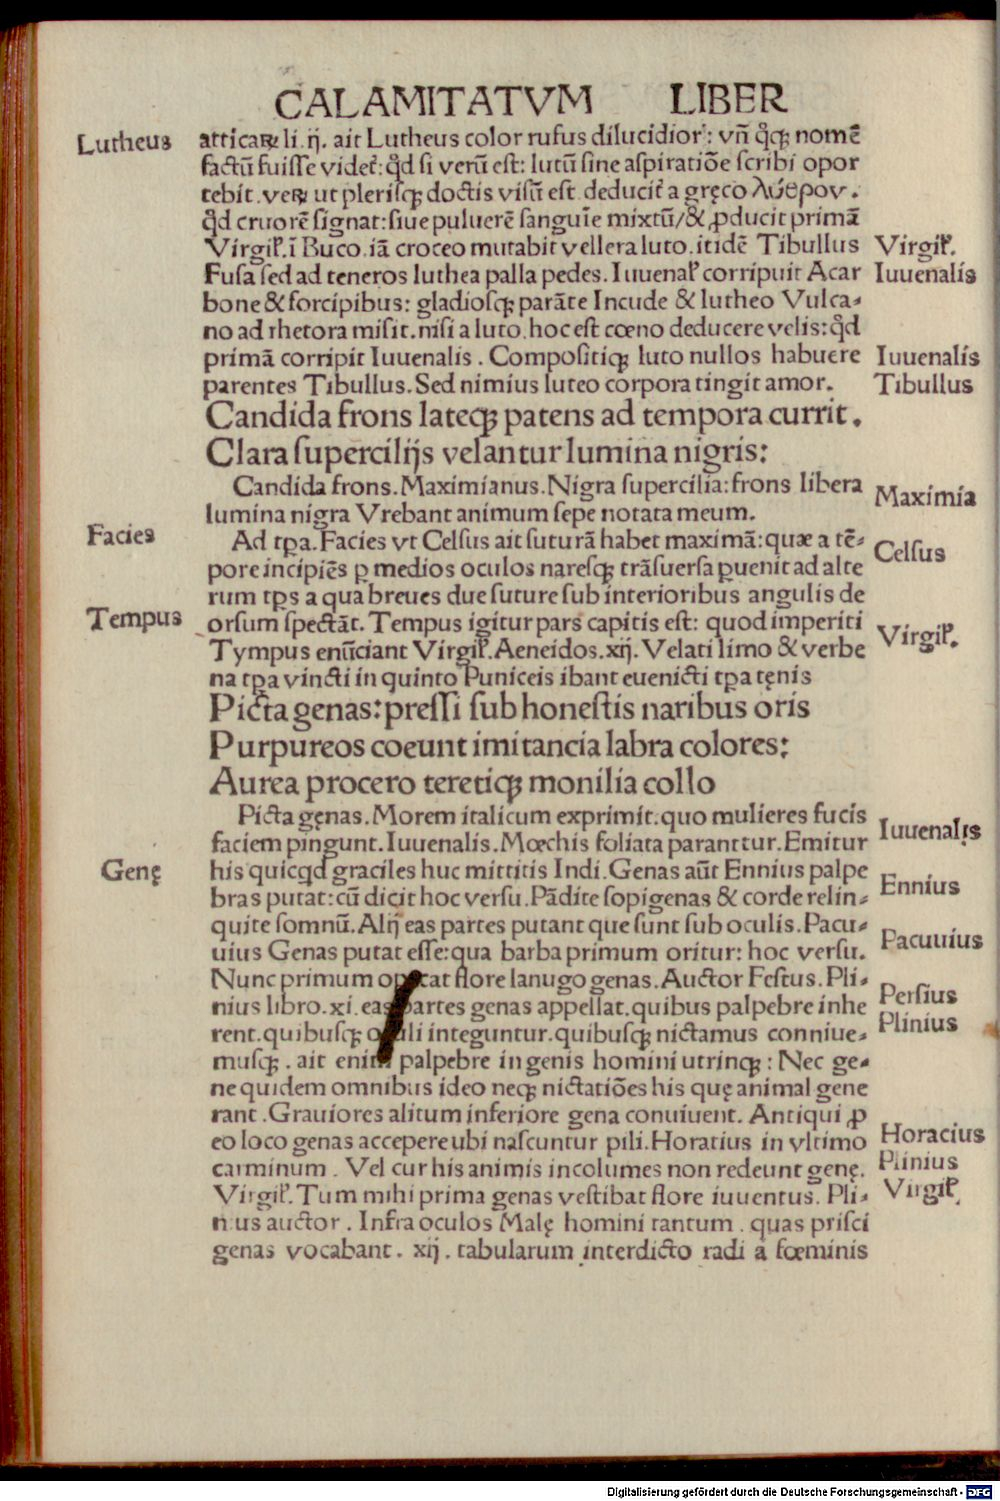 CALAMITATVM LIBER
Lutheus
atticaꝝ li.ij. ait Lutheus color rufus dilucidior: vñ qͥcqꝫ nomē
factū fuisse videt̃: qđ si verū est: lutū sine aspiratiōe scribi opor
tebit. veꝝ ut plerisqꝫ doctis visū est. deducit̃ a gręco λύθρον.
qđ cruorē signat: siue puluerē sanguīe mixtū/& ꝓducit primā
Virgiꝉ. ī Buco. iā croceo mutabit vellera luto. itidē Tibullus
Fusa sed ad teneros luthea palla pedes. Iuuenaꝉ corripuit Acar
bone & forcipibus: gladiosqꝫ parāte Incude & lutheo Vulca-
no ad rhetora misit. nisi a luto. hoc est cœno deducere velis: qđ
primā corripit Iuuenalis. Compositiqꝫ luto nullos habuere
parentes Tibullus. Sed nimius luteo corpora tingit amor.
Virgiꝉ.
Iuuenalis
Iuuenalis
Tibullus
Candida frons lateqꝫ patens ad tempora currit.
Clara supercilijs velantur lumina nigris:
Candida frons. Maximianus. Nigra supercilia: frons libera
lumina nigra Vrebant animum sepe notata meum.
Maximia
Facies
Ad tp̱a. Facies vt Celsus ait suturā habet maximā: quæ a tē-
pore incipiēs ꝑ medios oculos naresqꝫ trāsuersa ꝑuenit ad alte
rum tp̱s a qua breues due suture sub interioribus angulis de
orsum spectāt. Tempus igitur pars capitis est: quod imperiti
Tympus enūciant Virgiꝉ. Aeneidos. xij. Velati limo & verbe
na tp̱a vincti in quinto Puniceis ibant euenicti tp̱a tęnis
Celsus
Tempus
Virgiꝉ.
Picta genas: pressi sub honestis naribus oris
Purpureos coeunt imitancia labra colores:
Aurea procero teretiqꝫ monilia collo
Picta gęnas. Morem italicum exprimit. quo mulieres fucis
faciem pingunt. Iuuenalis. Mœchis foliata paranttur. Emitur
his quicqđ graciles huc mittitis Indi. Genas aūt Ennius palpe
bras putat: cū dicit hoc versu. Pādite sopigenas & corde relin-
quite somnū. Alij eas partes putant que sunt sub oculis. Pacu-
uius Genas putat esse: qua barba primum oritur: hoc versu.
Nunc primum opacat flore lanugo genas. Auctor Festus. Pli-
nius libro. xi. eas partes genas appellat. quibus palpebre inhe
rent. quibusqꝫ oculi integuntur. quibusqꝫ nictamus conniue-
musqꝫ. ait enim palpebre in genis homini utrinqꝫ: Nec ge-
ne quidem omnibus ideo neqꝫ nictatiōes his quę animal gene
rant. Grauiores alitum inferiore gena conuiuent. Antiqui ꝓ
eo loco genas accepere ubi nascuntur pili. Horatius in vltimo
carminum. Vel cur his animis incolumes non redeunt genę.
Virgiꝉ. Tum mihi prima genas vestibat flore iuuentus. Pli-
nius auctor. Infra oculos Malę homini tantum. quas prisci
genas vocabant. xij. tabularum interdicto radi a fœminis
Iuuenalis
Genę
Ennius
Pacuuius
Persius
Plinius
Horacius
Plinius
Virgiꝉ.
Digitalisierung gefördert durch die Deutsche Forschungsgemeinschaft - DFG